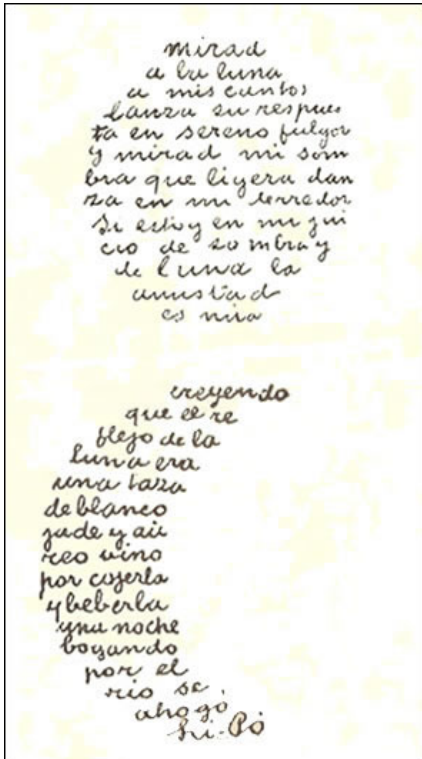 mirad
a la luna
a mis cantos
lanza su respues
ta en sereno fulgor
y mirad mi som
bra que ligera dan
za en mi derredor
Si estoy en mi jui
cio de sombra y
de luna la
amistad
es mia
creyendo
que el re
flejo de la
luna era
una taza
de blanco
jade y aü
reo vino
por cojerla
y beberla
una noche
bogando
por el
rio se
ahogó
Li-Pó